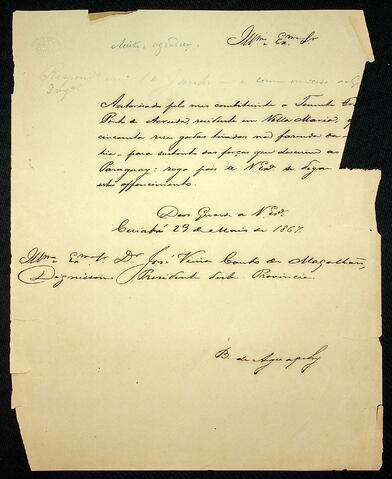 Aceite, agradeça,
Illmo. Exmo. Sr.
Respond em 1º de Junho
Autorizado pelo meu constituinte o Tenente Cor
Ponte de Arruda, residente em Villa Maria,
cincoenta rezes gordas tiradas na fazenda da
para sustento das forças que descerem ao
Paraguay; rogo pois a V Exa. se digne
este offerecimento.
Deos Guarde a V Exa.
Cuiabá 29 de Maio de 1867.
Illmo. Exmo. Sr. Dr. José Vieira Couto de Magalhães,
Dignissimo Presidente desta Provincia.
B. de Aguapehy